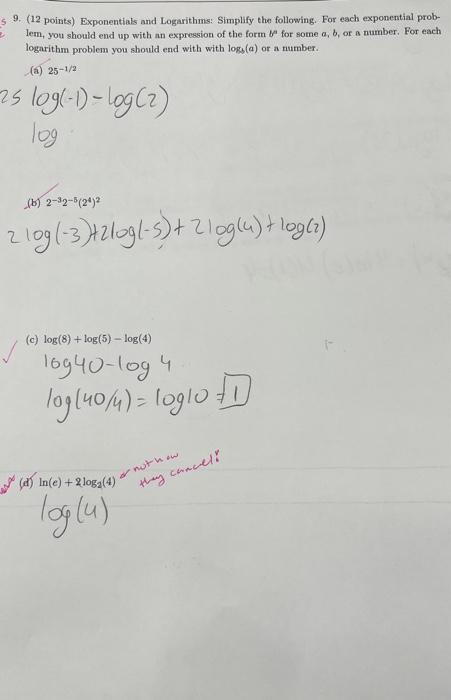 9. (12 points) Exponentials and Logarithms: Simplify the following. For each exponential prob-
lem, you should end up with an expression of the form bᵃ for some a, b, or a number. For each
logarithm problem you should end with with log_b(a) or a number.
(a) 25^{-1/2}
25 log(-1) - log(2)
log
(b) 2^{-3}2^{-5}(2^4)^2
2 log(-3)+2log(-5)+ 2log(4)+log(2)
(c) log(8) + log(5) − log(4)
log40-log 4
log(40/4) = log10 = 1
(d) ln(e) + 2 log₂(4)
not how
they cancel!
log(4)